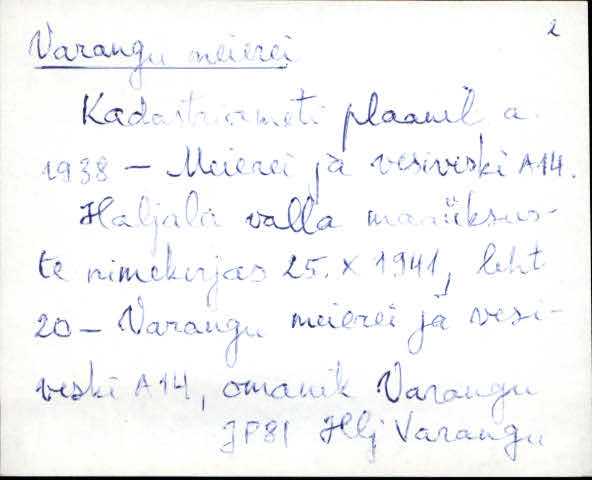 2
Varangu meierei
Kadastriameti plaanil a.
1938 – Meierei ja vesiveski A14.
Haljala valla maaüksus-
te nimekirjas 25. X 1941, leht
20 – Varangu meierei ja vesi-
veski A14, omanik Varangu
JP81 Hlj Varangu